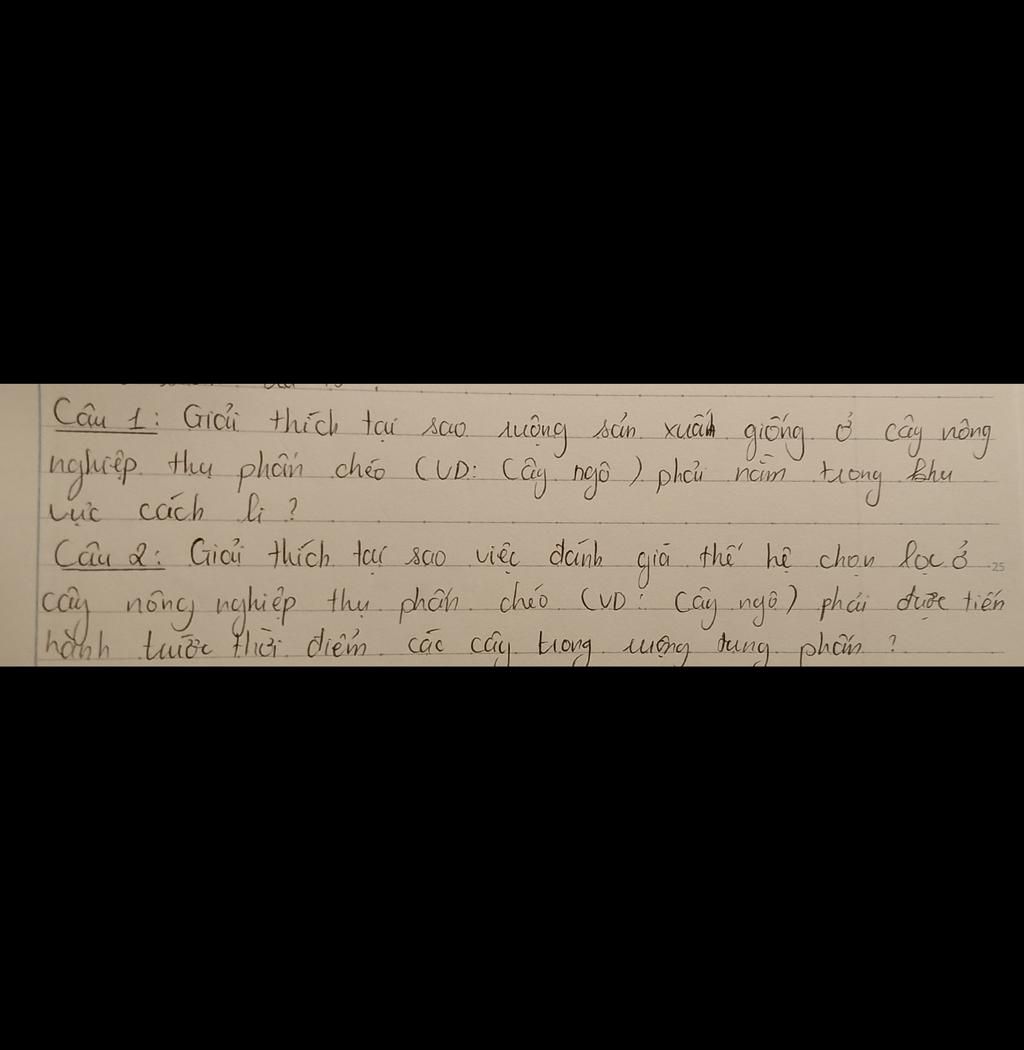 Câu 1: Giải thích tại sao ruộng sản xuất giống ở cây nông
nghiệp thụ phấn chéo (VD: Cây ngô) phải nằm trong khu
vực cách li ?
Câu 2: Giải thích tại sao việc đánh giá thế hệ chọn lọc ở
25
cây nông nghiệp thụ phấn chéo (VD: Cây ngô) phải được tiến
hành trước thời điểm các cây trong ruộng tung phấn ?